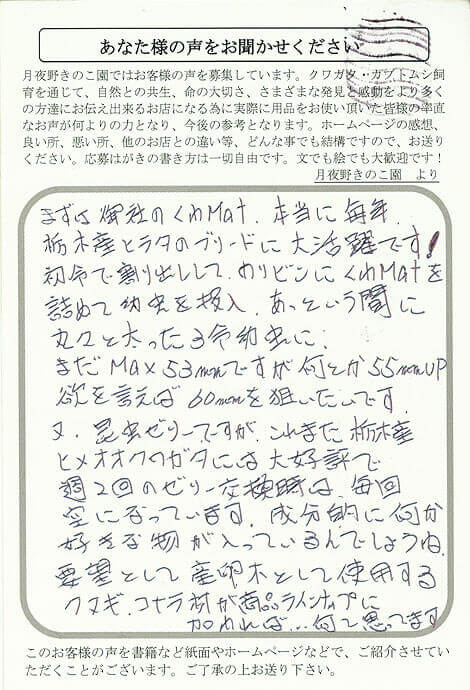 あなた様の声をお聞かせください
月夜野きのこ園ではお客様の声を募集しています。クワガタ・カブトムシ飼
育を通じて、自然との共生、命の大切さ、さまざまな発見と感動をより多く
の方達にお伝え出来るお店になる為に実際に用品をお使い頂いた皆様の率直
なお声が何よりの力となり、今後の参考となります。ホームページの感想、
良い所、悪い所、他のお店との違い等、どんな事でも結構ですので、お送り
ください。応募はがきの書き方は一切自由です。文でも絵でも大歓迎です！
月夜野きのこ園　より
まずは御社のくわMat、本当に毎年、
栃木産ヒラタのブリードに大活躍です！
初令で割り出しして、のりビンにくわMatを
詰めて幼虫を投入、あっという間に
丸々と太った3令幼虫に、
まだMax 53mmですが何とか55mmUP
欲を言えば60mmを狙いたいです
又、昆虫ゼリーですが、これまた栃木産
ヒメオオクワガタには大好評で
週2回のゼリー交換時は、毎回
空になっています。成分的に何か
好きな物が入っているんでしょうね、
要望として産卵木として使用する
クヌギ、コナラ材が商品ラインナップに
加われば…何て思ってます
このお客様の声を書籍など紙面やホームページなどで、ご紹介させてい
ただくことがございます。ご了承の上お送り下さい。